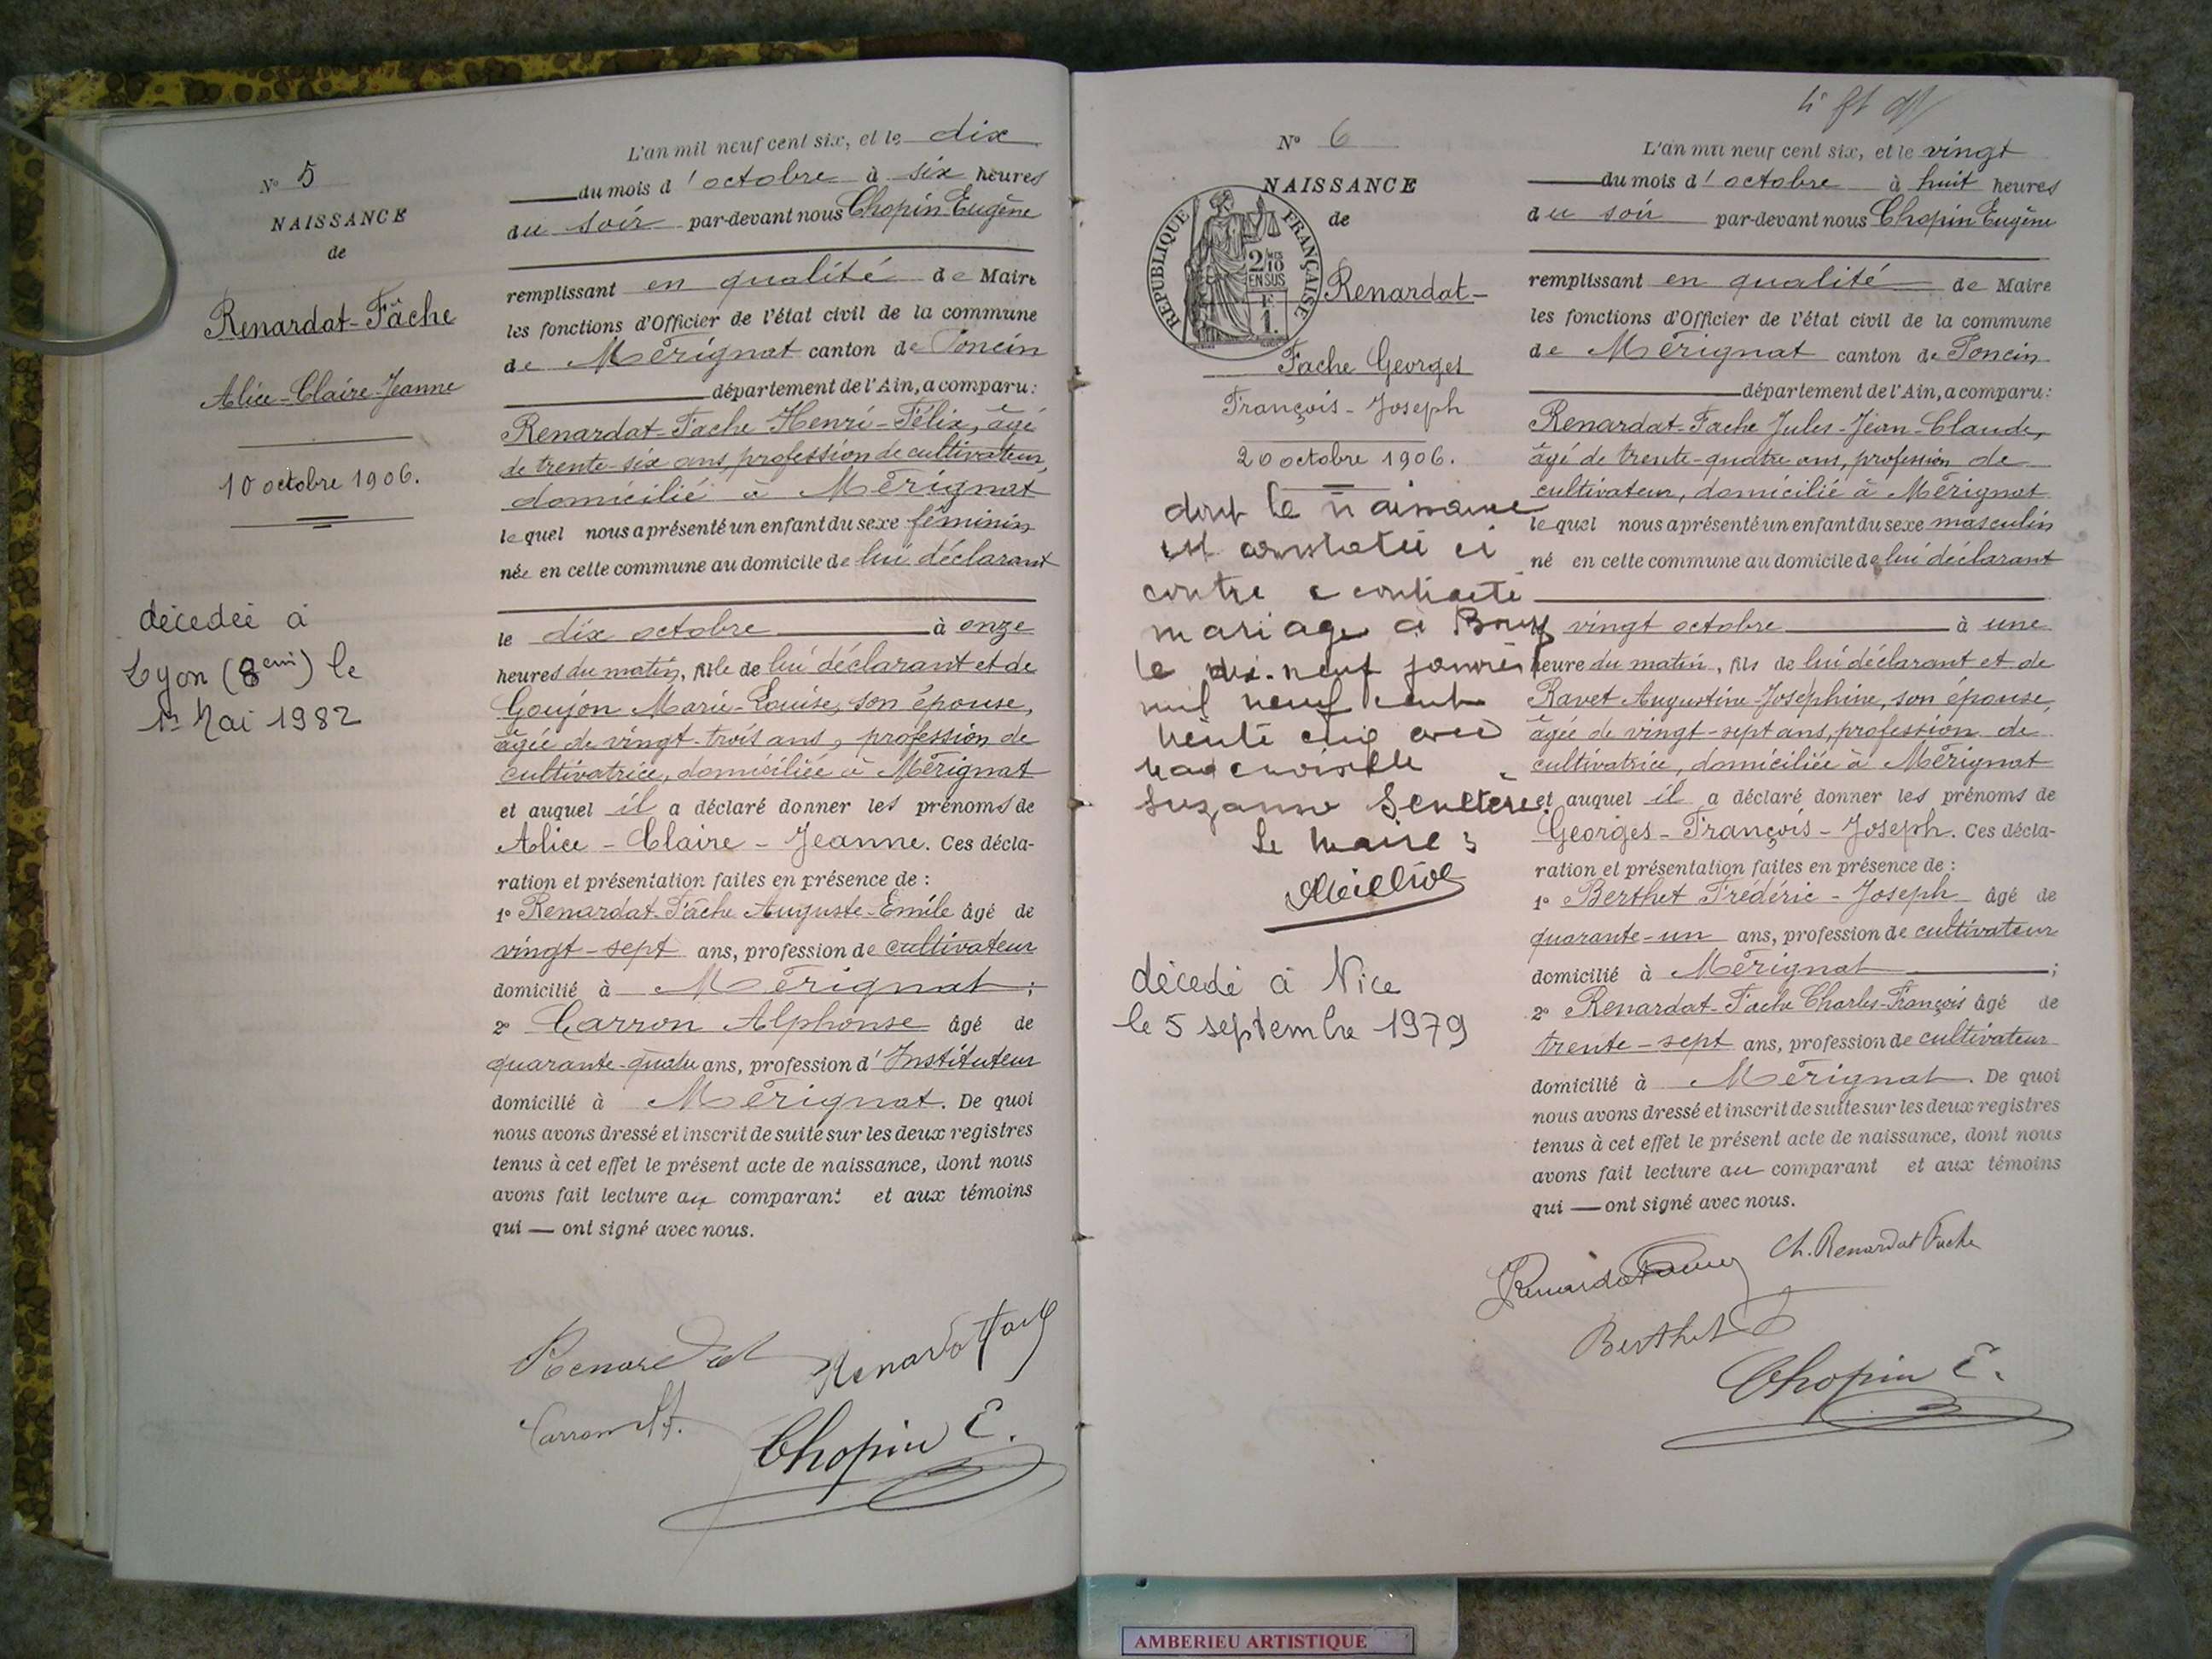 N° 5
NAISSANCE
de
Renardat-Fâche
Alice-Claire-Jeanne
10 octobre 1906.
décédée à
Lyon (8eme) le
1er Mai 1982
L'an mil neuf cent six, et le dix
du mois d'octobre à six heures
du soir par-devant nous Chopin Eugène
remplissant en qualité de Maire
les fonctions d'Officier de l'état civil de la commune
de Mérignat canton de Poncin
département de l'Ain, a comparu:
Renardat-Fache Henri-Félix, âgé
de trente-six ans, profession de cultivateur,
domicilié à Mérignat
lequel nous a présenté un enfant du sexe féminin
née en cette commune au domicile de lui déclarant
le dix octobre à onze
heures du matin, fille de lui déclarant et de
Goujon Marie-Louise, son épouse,
âgée de vingt-trois ans, profession de
cultivatrice, domiciliée à Mérignat
et auquel il a déclaré donner les prénoms de
Alice-Claire-Jeanne. Ces décla-
ration et présentation faites en présence de :
1° Renardat-Fâche Auguste-Emile âgé de
vingt-sept ans, profession de cultivateur
domicilié à Mérignat ;
2° Carron Alphonse âgé de
quarante-quatre ans, profession d'Instituteur
domicilié à Mérignat. De quoi
nous avons dressé et inscrit de suite sur les deux registres
tenus à cet effet le présent acte de naissance, dont nous
avons fait lecture au comparant et aux témoins
qui — ont signé avec nous.
Renardat
Carron
Chopin E.
N° 6
NAISSANCE
de
REPUBLIQUE FRANÇAISE
2/10
EN SUS
F
1.
Renardat-
Fache Georges
François-Joseph
20 octobre 1906.
dont la naissance
est constatée ci
contre a contracté
mariage à Bourg
le dix-neuf janvier
mil neuf cent
trente cinq avec
Mademoiselle
Suzanne
Le Maire :
décédé à Nice
le 5 septembre 1979
L'an mil neuf cent six, et le vingt
du mois d'octobre à huit heures
du soir par-devant nous Chopin Eugène
remplissant en qualité de Maire
les fonctions d'Officier de l'état civil de la commune
de Mérignat canton de Poncin
département de l'Ain, a comparu:
Renardat-Fache Jules-Jean-Claude,
âgé de trente-quatre ans, profession de
cultivateur, domicilié à Mérignat
lequel nous a présenté un enfant du sexe masculin
né en cette commune au domicile de lui déclarant
vingt octobre à une
heure du matin, fils de lui déclarant et de
Ravet Augustine-Joséphine, son épouse,
âgée de vingt-sept ans, profession de
cultivatrice, domiciliée à Mérignat
et auquel il a déclaré donner les prénoms de
Georges-François-Joseph. Ces décla-
ration et présentation faites en présence de :
1° Berthet Frédéric-Joseph âgé de
quarante-un ans, profession de cultivateur
domicilié à Mérignat ;
2° Renardat-Fache Charles-François âgé de
trente-sept ans, profession de cultivateur
domicilié à Mérignat. De quoi
nous avons dressé et inscrit de suite sur les deux registres
tenus à cet effet le présent acte de naissance, dont nous
avons fait lecture au comparant et aux témoins
qui — ont signé avec nous.
Ch. Renardat Fache
Berthet
Chopin E.
AMBERIEU ARTISTIQUE